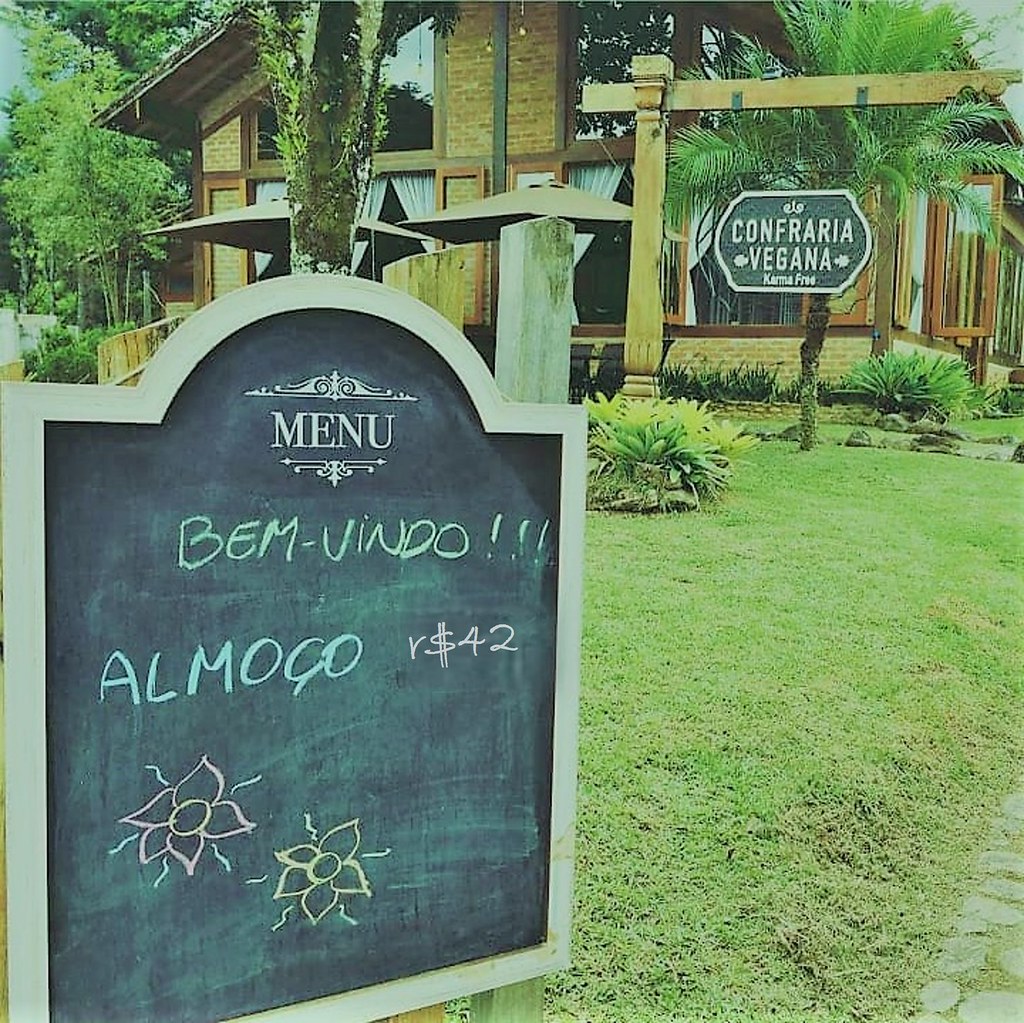 CONFRARIA
VEGANA
Karma Free
MENU
BEM-VINDO!!!
ALMOÇO r$42